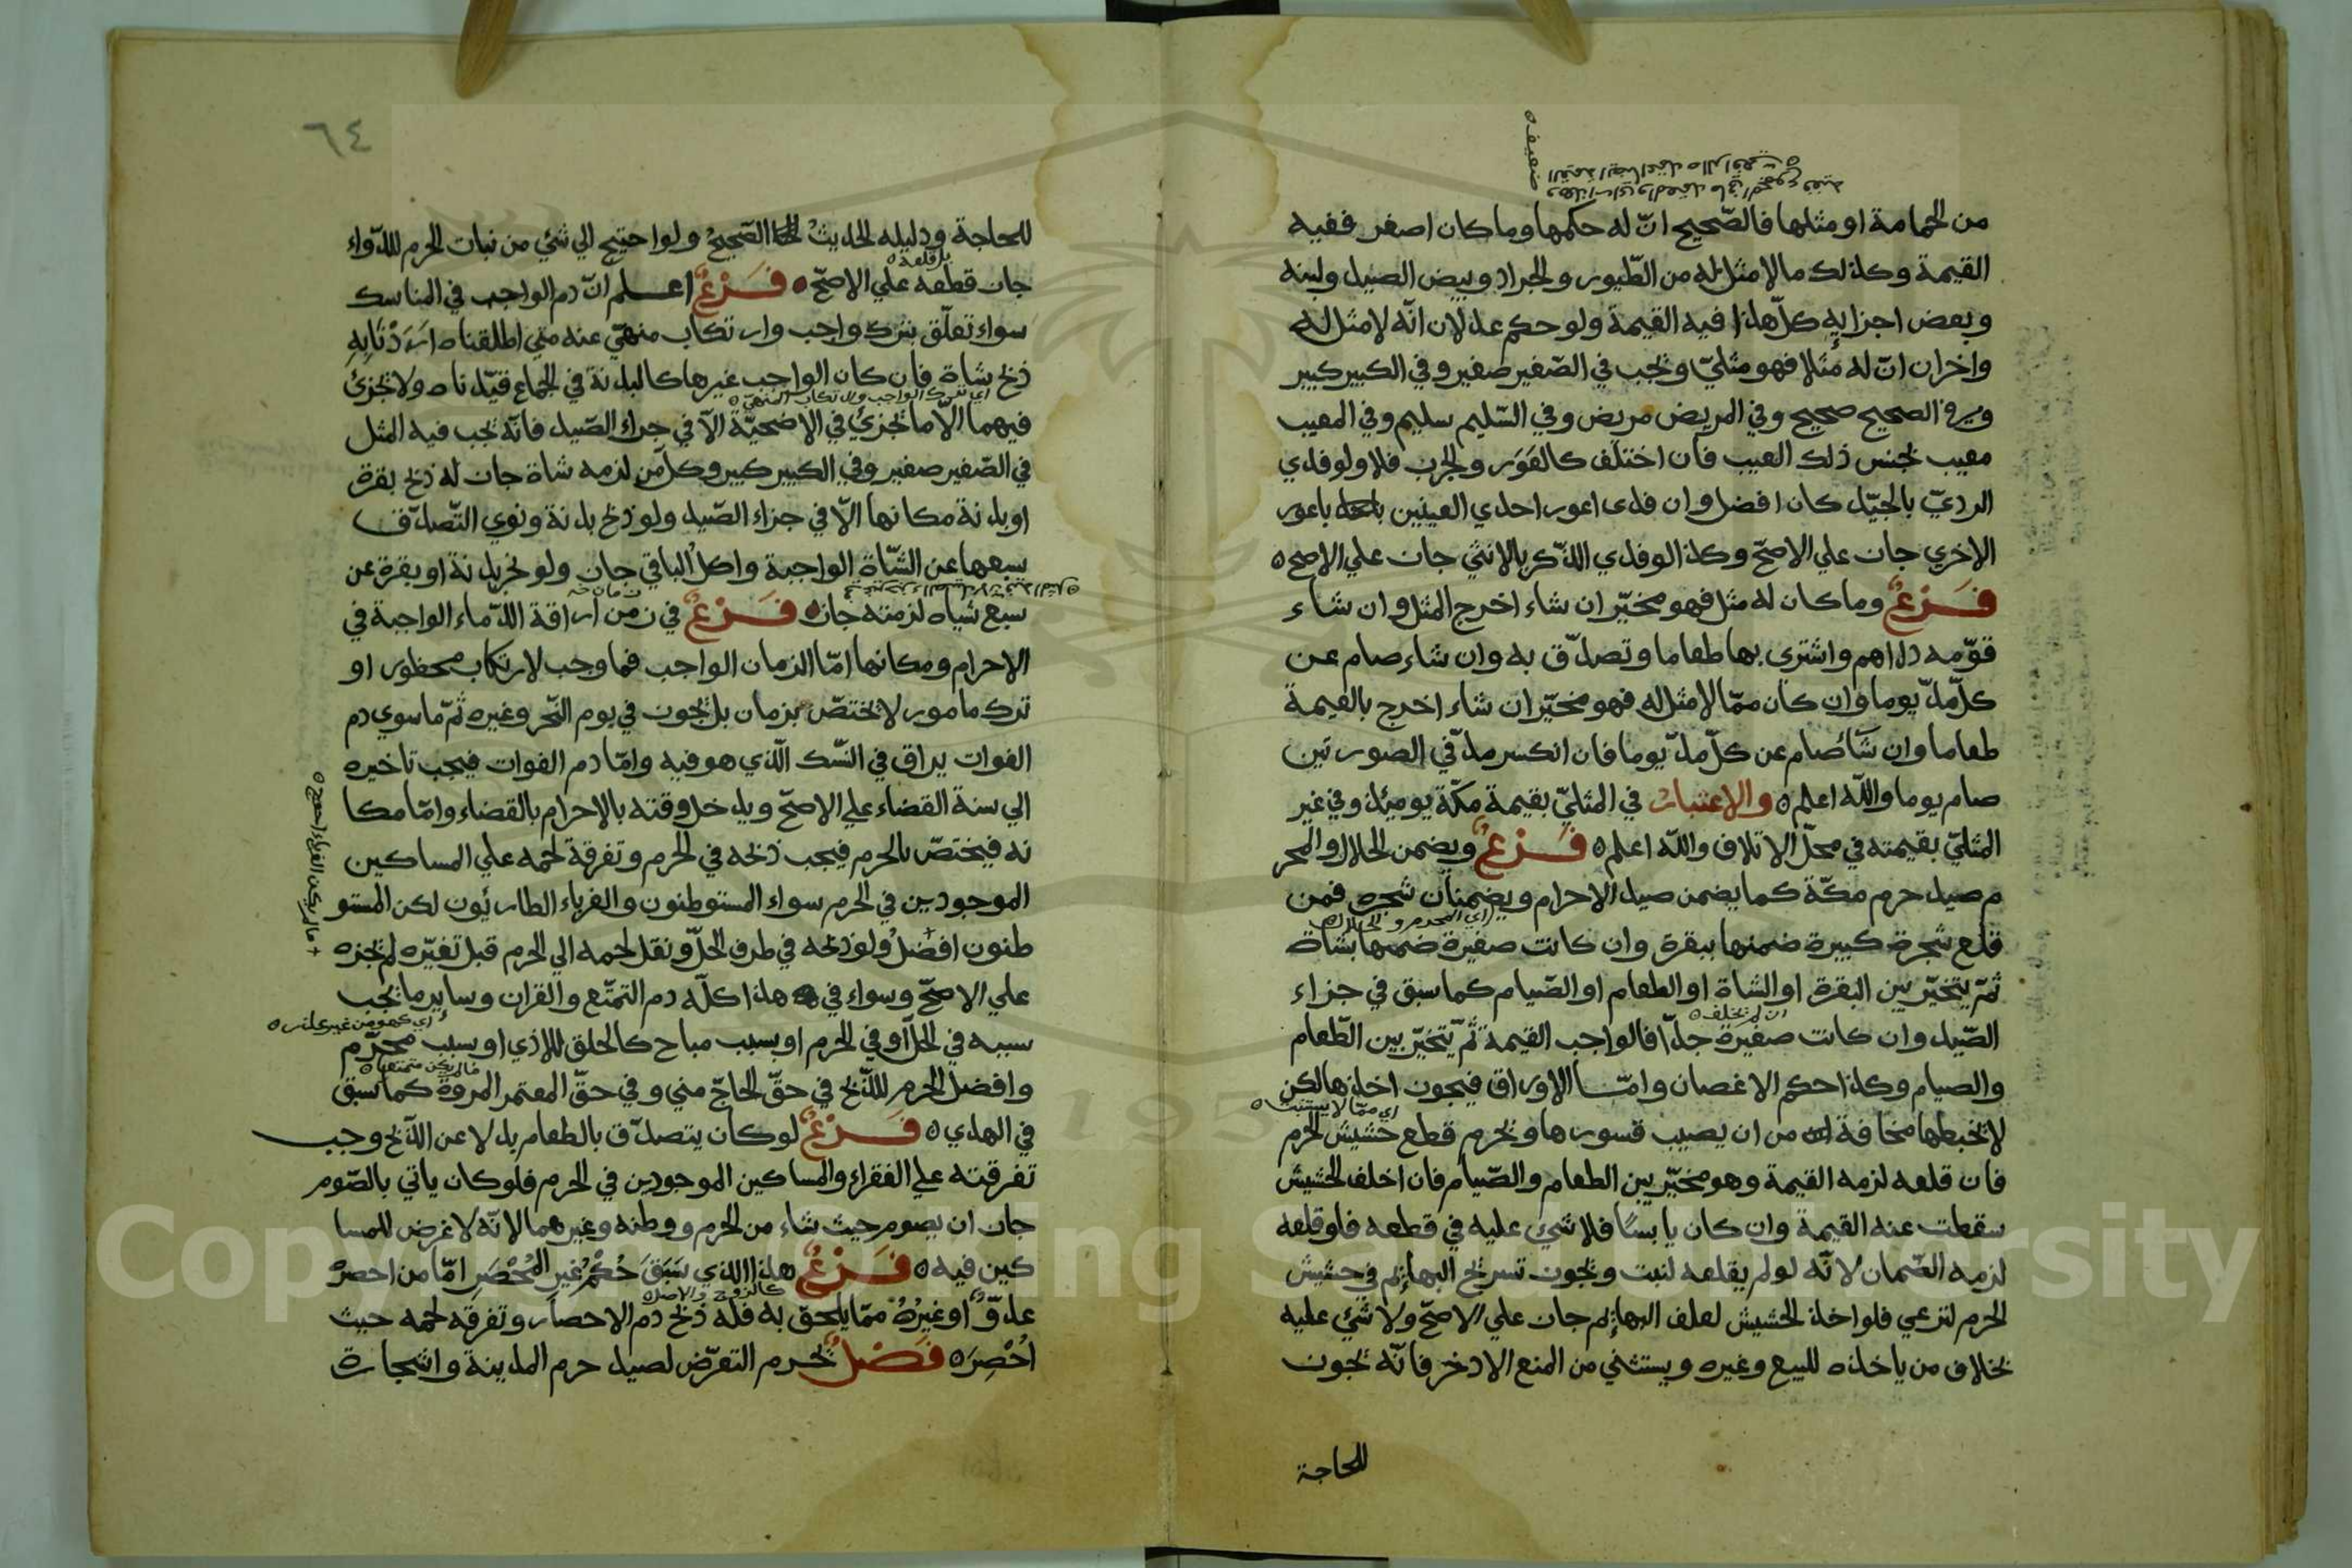 من الحمامة او مثلها فالصّحيح انّ له حكمها وما كان اصغر ففيه
القيمة وكذلك مالا مثل له من الطّيور والجراد وبيض الصيد ولبنه
وبعض اجزايه كلّ هذا فيه القيمة ولو حكم عدلان انّه لا مثل له
واخران انّ له مثلا فهو مثليّ ويجب في الصّغير صغير وفي الكبير كبير
وفي الصحيح صحيح وفي المريض مريض وفي السّليم سليم وفي المعيب
معيب بجنس ذلك العيب فان اختلف كالعَوَر والجرب فلا ولو فدي
الرديّ بالجيّد كان افضل وان فدى اعور احدي العينين باعور
الاخري جاز علي الاصحّ وكذا لو فدي الذّكر بالانثي جاز علي الاصح ه
فَرْعٌ وما كان له مثل فهو مخيّر ان شاء اخرج المثل وان شاء
قوّمه دراهم واشترى بها طعاما وتصدّق به وان شاء صام عن
كلّ مدّ يوما وان كان ممّا لا مثل له فهو مخيّر ان شاء اخرج بالقيمة
طعاما وان شاء صام عن كلّ مدّ يوما فان انكسر مدّ في الصورتين
صام يوما واللّه اعلم ه والاعتبار في المثليّ بقيمة مكّة يومئذ وفي غير
المثليّ بقيمته في محلّ الاتلاف واللّه اعلم ه فَرْعٌ ويضمن الحلال والمحر
م صيد حرم مكّة كما يضمن صيد الاحرام ويضمنان شجره فمن
اي المحرم والحلال ه
قلع شجرة كبيرة ضمنها ببقرة وان كانت صغيرة ضمنها بشاة
ثمّ يتخيّر بين البقرة او الشاة او الطعام او الصّيام كما سبق في جزاء
ان لم يخلف ه
الصّيد وان كانت صغيرة جدّا فالواجب القيمة ثمّ يتخيّر بين الطّعام
والصيام وكذا حكم الاغصان وامّا الاوراق فيجوز اخذها لكن
اي ممّا لا يستنبت ه
لا يخبطها مخافة من ان يصيب قسورها ويحرم قطع حشيش الحرم
فان قلعه لزمه القيمة وهو مخيّر بين الطعام والصّيام فان اخلف الحشيش
سقطت عنه القيمة وان كان يابسًا فلا شيء عليه في قطعه فلو قلعه
لزمه الضّمان لانّه لو لم يقلعه لنبت ويجوز تسريح البهائم في حشيش
الحرم لترعي فلو اخذ الحشيش لعلف البهائم جاز علي الاصحّ ولا شيء عليه
بخلاف من ياخذه للبيع وغيره ويستثني من المنع الاذخر فانّه يجوز
للحاجة
ضعيف ه
٦٤
للحاجة ودليله الحديثُ الصّحيحُ ولو احتيج الي شئي من نبات الحرم للدّواء
بل قلعه ه
جاز قطعه علي الاصحّ ه فَرْعٌ اعلم انّ دم الواجب في المناسك
سواء تعلّق بترك واجب وارتكاب منهيّ عنه متي اطلقناه اَرَدْنَا بِهِ
ذبح شاة فان كان الواجب غيرها كالبدنة في الجماع قيّدناه ولا يجزئ
اي بترك الواجب والارتكاب المنهيّ ه
فيهما الّا ما يجزئ في الاضحيّة الّا في جزاء الصّيد فانّه يجب فيه المثل
في الصّغير صغير وفي الكبير كبير وكلّ من لزمه شاة جاز له ذبح بقرة
او بدنة مكانها الّا في جزاء الصّيد ولو ذبح بدنة ونوي التّصدّق
بسبعها عن الشّاة الواجبة واكل الباقي جاز ولو نحر بدنة او بقرة عن
سبع شياه لزمته جاز ه فَرْعٌ في زمن اراقة الدّماء الواجبة في
الاحرام ومكانها امّا الزمان الواجب فما وجب لارتكاب محظور او
ترك مامور لا يختصّ بزمان بل يجوز في يوم النّحر وغيره ثمّ ما سوي دم
الفوات يراق في النّسك الّذي هو فيه وامّا دم الفوات فيجب تاخيره
الي سنة القضاء علي الاصحّ ويدخل وقته بالاحرام بالقضاء وامّا مكا
نه فيختصّ بالحرم فيجب ذبحه في الحرم وتفرقة لحمه علي المساكين
الموجودين في الحرم سواء المستوطنون والغرباء الطارئون لكن المستو
طنون افضلُ ولو ذبحه في طرف الحلّ ونقل لحمه الي الحرم قبل تغيّره لم يجزه
ما لم يكن الغرباء احوج ه
علي الاصحّ وسواء في هذا كلّه دم التمتّع والقران وساير ما يجب
اي كهو من غير عذر ه
سببه في الحلّ او في الحرم او بسبب مباح كالحلق للاذي او بسبب محرّم
ما لم يكن متمتعا ه
وافضل الحرم للذّبح في حقّ الحاجّ مني وفي حقّ المعتمر المروة كما سبق
في الهدي ه فَرْعٌ لو كان يتصدّق بالطعام بدلا عن الذّبح وجب
تفرقته علي الفقراء والمساكين الموجودين في الحرم فلو كان ياتي بالصّوم
جاز ان يصوم حيث شاء من الحرم ووطنه وغيرهما لانّه لا غرض للمسا
كين فيه ه فَرْعٌ هذا الذي سَبَقَ حُكْمُ غيرِ المُحْصَرِ امّا من احصرهُ
كالزوج والاصل ه
عدوٌّ او غيرُهُ ممّا يلحق به فله ذبح دم الاحصار وتفرقه لحمه حيث
اُحْصِرَ ه فَصْلٌ يحرم التعرّض لصيد حرم المدينة واشجارة
Copyright © King Saud University
195